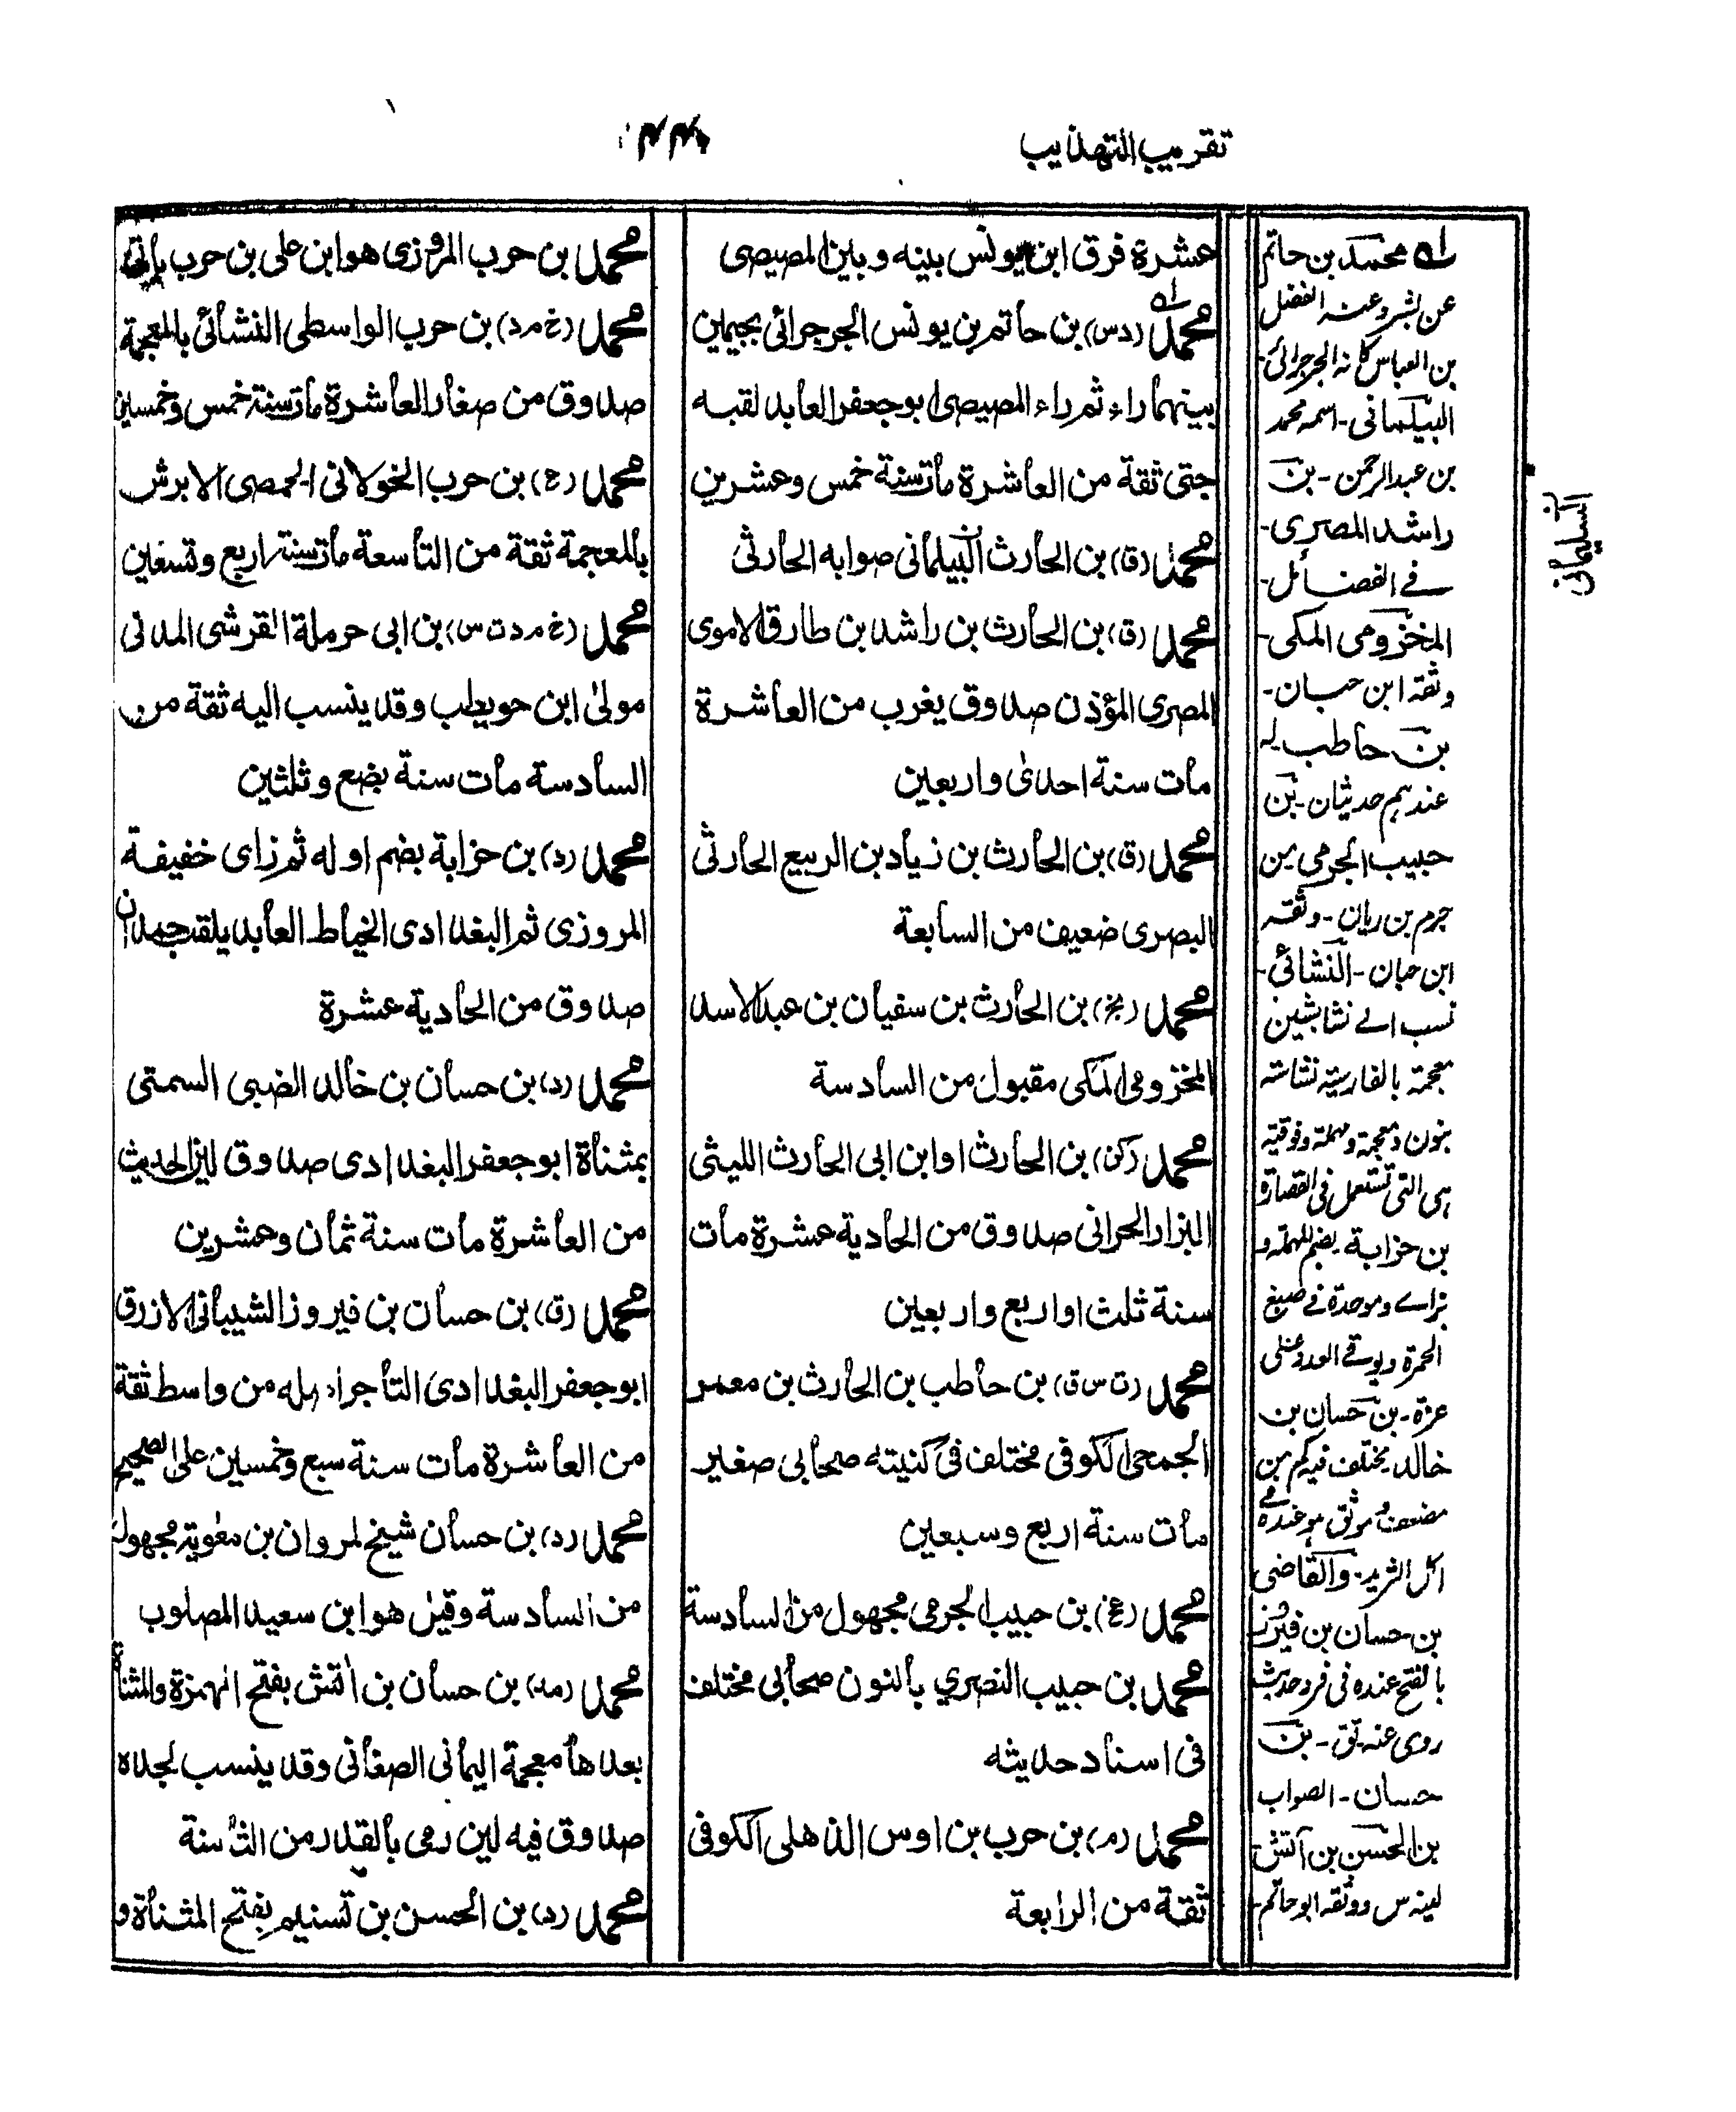 تقريب التهذيب
عشرة فرق ابن يونس بينه وبين المصيصى
محمد (دس) بن حاتم بن يونس الجرجرائى بجيمين
بينهما راء ثم راء المصيصى ابو جعفر العابد لقبه
حبى ثقة من العاشرة مات سنة خمس وعشرين
محمد (ق) بن الحارث البيلمانى صوابه الحارثى
محمد (ق) بن الحارث بن راشد بن طارق الاموى
المصرى المؤذن صدوق يغرب من العاشرة
مات سنة احدى واربعين
محمد (ق) بن الحارث بن زياد بن الربيع الحارثى
البصرى ضعيف من السابعة
محمد (بخ) بن الحارث بن سفيان بن عبد الاسد
المخزومى المكى مقبول من السادسة
محمد (كن) بن الحارث او ابن ابى الحارث الليثى
البزار الحرانى صدوق من الحادية عشرة مات
سنة ثلث او اربع واربعين
محمد (ت س ق) بن حاطب بن الحارث بن معمر
الجمحى الكوفى مختلف فى كنيته صحابى صغير
مات سنة اربع وسبعين
محمد (عخ) بن حبيب الجرمى مجهول من السادسة
محمد بن حبيب النصري بالنون صحابى مختلف
فى اسناد حديثه
محمد (م) بن حرب بن اوس الذهلى الكوفى
ثقة من الرابعة
محمد بن حرب المروزى هو ابن على بن حرب يأتى
محمد (خ م د) بن حرب الواسطى النشائى بالمعجمة
صدوق من صغار العاشرة مات سنة خمس وخمسين
محمد (ع) بن حرب الخولانى الحمصى الابرش
بالمعجمة ثقة من التاسعة مات سنة اربع وتسعين
محمد (خ م د ت س) بن ابى حرملة القرشى المدنى
مولى ابن حويطب وقد ينسب اليه ثقة من
السادسة مات سنة بضع وثلثين
محمد (د) بن حزابة بضم اوله ثم زاى خفيفة
المروزى ثم البغدادى الخياط العابد يلقب حمدان
صدوق من الحادية عشرة
محمد (د) بن حسان بن خالد الضبى السمتى
بمثناة ابو جعفر البغدادى صدوق لين الحديث
من العاشرة مات سنة ثمان وعشرين
محمد (ق) بن حسان بن فيروز الشيبانى الازرق
ابو جعفر البغدادى التاجر اصله من واسط ثقة
من العاشرة مات سنة سبع وخمسين على الصحيح
محمد (د) بن حسان شيخ لمروان بن معوية مجهول
من السادسة وقيل هو ابن سعيد المصلوب
محمد (مد) بن حسان بن اتش بفتح الهمزة والمثناة
بعدها معجمة اليمانى الصنعانى وقد ينسب لجده
صدوق فيه لين رمى بالقدر من التاسعة
محمد (د) بن الحسن بن تسنيم بفتح المثناة و
محمد بن حاتم
عن بشر وعنه الفضل
بن العباس كانه الجرجرائى -
البيلمانى - اسمه محمد
بن عبد الرحمن - بن
راشد المصرى -
فى الفضائل -
المخزومى المكى -
وثقه ابن حبان -
بن حاطب له
عندهم حديثان - بن
حبيب الجرمى من
جرم بن ريان - وثقه
ابن حبان - النشائى -
نسب الى نشا بشين
معجمة بالفارسية نشاسته
بنون ومعجمة ومهملة وفوقية
هى التى تستعمل فى القصارة
بن حزابة بضم المهملة و
بزاى وموحدة
عزة - بن حسان بن
خالد يختلف فيه كم من
مضعف وموثق
اكل الثريد - والقاضى
بن حسان بن فيروز
بالفتح عنده فى فرد حديث
روى عنه ق - بن
حسان - الصواب
بن الحسن بن آتش
لينه س ووثقه ابو حاتم -
السليمانى